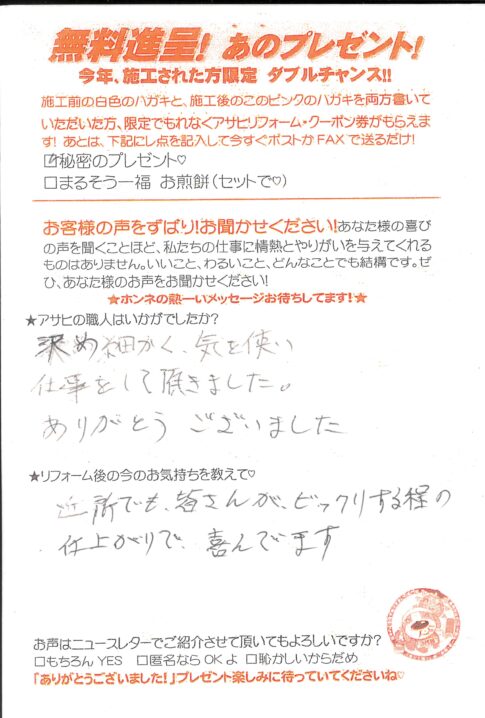 無料進呈! あのプレゼント!
今年、施工された方限定 ダブルチャンス!!
施工前の白色のハガキと、施工後のこのピンクのハガキを両方書いて
いただいた方、限定でもれなくアサヒリフォーム・クーポン券がもらえま
す! あとは、下記にレ点を記入して今すぐポストかFAXで送るだけ!
☑秘密のプレゼント♡
□まるそう一福 お煎餅(セットで♡)
お客様の声をずばり!お聞かせください!あなた様の喜び
の声を聞くことほど、私たちの仕事に情熱とやりがいを与えてくれる
ものはありません。いいこと、わるいこと、どんなことでも結構です。ぜ
ひ、あなた様のお声をお聞かせください!
★ホンネの熱ーいメッセージお待ちしてます!★
★アサヒの職人はいかがでしたか?
細かく、気を使い
仕事をして頂きました。
ありがとう ございました
★リフォーム後の今のお気持ちを教えて♡
近所でも、皆さんが、ビックリする程の
仕上がりで、喜んでます
お声はニュースレターでご紹介させて頂いてもよろしいですか?
□もちろん YES □匿名なら OK よ □恥かしいからだめ
「ありがとうございました!」プレゼント楽しみに待っていてくださいね♡